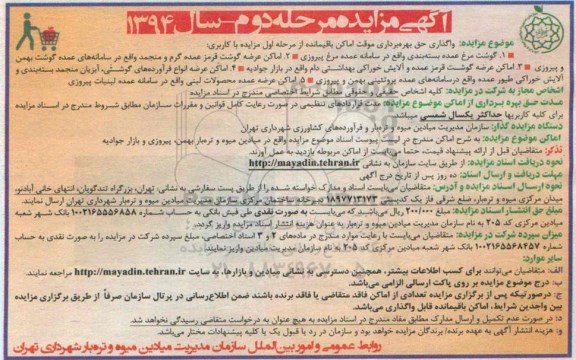 آگهی مزایده مرحله دوم - سال ۱۳۹۴
موضوع مزایده: واگذاری حق بهره‌برداری موقت اماکن باقیمانده از مرحله اول مزایده با کاربری:
۱. گوشت مرغ عمده بسته‌بندی واقع در سامانه عمده مرغ پیروزی ۲. اماکن عرضه گوشت قرمز عمده گرم و منجمد واقع در سامانه‌های عمده گوشت بهمن
و پیروزی ۳. اماکن عرضه گوشت قرمز عمده و آلایش خوراکی بهداشتی دام واقع در بازار جوادیه ۴. اماکن عرضه انواع فرآورده‌های گوشتی، آبزیان منجمد بسته‌بندی و
آلایش خوراکی طیور عمده واقع در سامانه‌های عمده پروتئینی بهمن و پیروزی ۵. اماکن عرضه عمده محصولات لبنی واقع در سامانه عمده لبنیات پیروزی
اشخاص مجاز به شرکت در مزایده: کلیه اشخاص حقیقی و حقوقی مطابق شرایط اختصاصی مندرج در اسناد مزایده
مدت حق بهره برداری از اماکن موضوع مزایده: مدت قراردادهای تنظیمی در صورت رعایت کامل قوانین و مقررات سازمان مطابق شروط مندرج در اسناد مزایده
برای کلیه کاربریها حداکثر یکسال شمسی میباشد.
دستگاه مزایده گذار: سازمان مدیریت میادین میوه و تره‌بار و فرآورده‌های کشاورزی شهرداری تهران
اماکن موضوع مزایده: به شرح اماکن مندرج در لیست پیوست اسناد موضوع مزایده واقع در میادین میوه و تره‌بار بهمن، پیروزی و بازار جوادیه
تذکر: متقاضیان قبل از ارائه پیشنهاد قیمت، حتما می‌بایست از اماکن مربوطه بازدید به عمل آورند.
نحوه دریافت اسناد مزایده: از طریق سایت سازمان به نشانی http://mayadin.tehran.ir
مهلت دریافت و ارسال اسناد: ده روز پس از تاریخ درج آگهی
نحوه ارسال اسناد مزایده و آدرس: متقاضیان می‌بایست اسناد و مدارک خواسته شده را از طریق پست سفارشی به نشانی: تهران، بزرگراه تندگویان، انتهای خانی آبادنو،
میدان مرکزی میوه و تره‌بار، ضلع شرقی فاز یک کدپستی ۱۸۹۷۷۱۳۱۷۳ دبیرخانه ساختمان مرکزی سازمان مدیریت میادین میوه و تره‌بار شهرداری تهران ارسال نمایند.
مبلغ حق انتشار اسناد مزایده: مبلغ ۲۰۰/۰۰۰ ریال می‌باشد که می‌بایست به صورت نقدی طی فیش بانکی به حساب شماره ۱۰۰۲۱۶۵۵۵۶۸۵۸ بانک شهر شعبه
میادین مرکزی کد ۲۰۵ به نام سازمان مدیریت میادین میوه و تره‌بار به عنوان هزینه انتشار اسناد مزایده واریز گردد.
میزان سپرده شرکت در مزایده: متقاضیان می‌بایست با رعایت موارد مندرج در ماده‌های ۲ و ۳ اسناد اختصاصی، مبلغ سپرده شرکت در مزایده را به صورت نقدی به حساب
شماره ۱۰۰۲۱۶۵۵۶۸۴۵۷ بانک شهر شعبه میادین مرکزی کد ۲۰۵ به نام سازمان مدیریت میادین واریز نمایند.
سایر موارد:
الف: متقاضیان می‌توانند برای کسب اطلاعات بیشتر، همچنین دسترسی به نشانی میادین و بازارها، به سایت http://mayadin.tehran.ir مراجعه نمایند.
ب: درج موضوع مزایده بر روی پاکت ارسالی الزامی می‌باشد.
ج: درصورتیکه پس از برگزاری مزایده تعدادی از اماکن فاقد متقاضی یا فاقد برنده باشند ضمن اطلاع‌رسانی در پرتال سازمان صرفاً از طریق برگزاری مزایده
بین واجدین شرایط، اماکن باقیمانده قابل واگذاری می‌باشد.
د: در صورت عدم تکمیل و ارسال مدارک مطابق مفاد مندرج در اسناد مزایده به هیچ عنوان به درخواست متقاضی رسیدگی نخواهد شد.
و: هزینه انتشار آگهی به عهده برنده/ برندگان مزایده خواهد بود و سازمان در رد یا قبول یک یا کلیه پیشنهادات مختار می‌باشد.
روابط عمومی و امور بین‌الملل سازمان مدیریت میادین میوه و تره‌بار شهرداری تهران